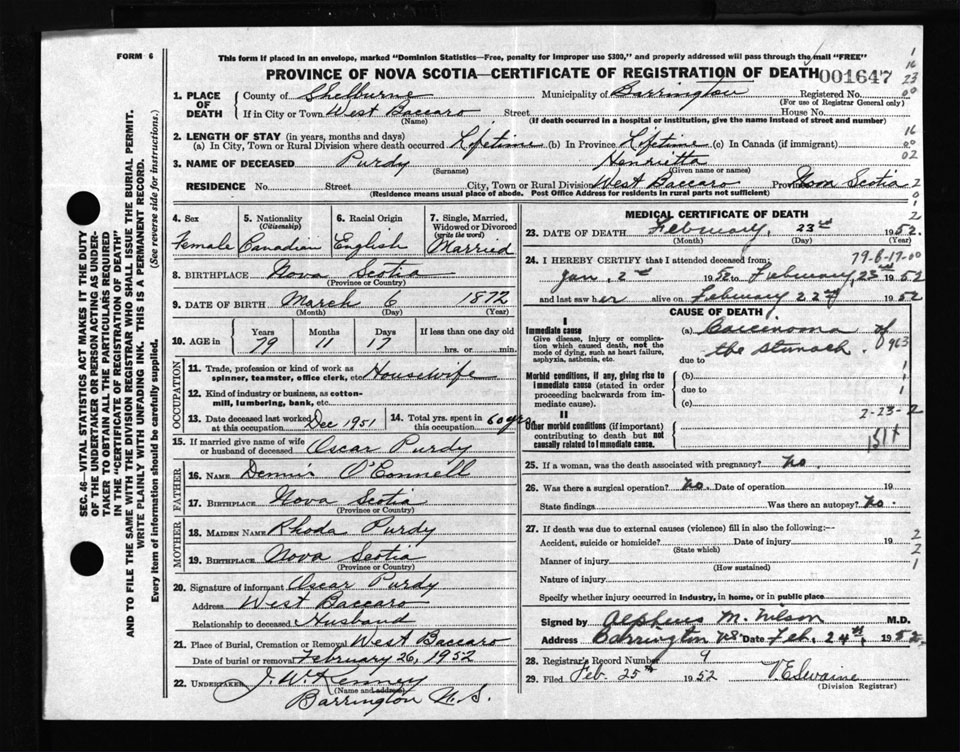 FORM 6
This form if placed in an envelope, marked "Dominion Statistics—Free, penalty for improper use $300," and properly addressed will pass through the mail "FREE"
PROVINCE OF NOVA SCOTIA—CERTIFICATE OF REGISTRATION OF DEATH 001647
1. PLACE OF DEATH
County of Shelburne Municipality of Barrington Registered No.
(For use of Registrar General only)
If in City or Town West Baccaro Street House No.
(Name) (If death occurred in a hospital or institution, give the name instead of street and number)
2. LENGTH OF STAY (in years, months and days)
(a) In City, Town or Rural Division where death occurred Lifetime (b) In Province Lifetime (c) In Canada (if immigrant)
3. NAME OF DECEASED Purdy Henrietta
(Surname) (Given name or names)
RESIDENCE No. Street City, Town or Rural Division West Baccaro Province Nova Scotia
(Residence means usual place of abode. Post Office Address for Residents in rural parts not sufficient)
4. Sex Female
5. Nationality (Citizenship) Canadian
6. Racial Origin English
7. Single, Married, Widowed or Divorced (write the word) Married
8. BIRTHPLACE Nova Scotia
(Province or Country)
9. DATE OF BIRTH March 6 1872
(Month) (Day) (Year)
10. AGE in Years Months Days If less than one day old
79 11 17 hrs. or min.
OCCUPATION
11. Trade, profession or kind of work as spinner, teamster, office clerk, etc. Housewife
12. Kind of industry or business, as cotton-mill, lumbering, bank, etc.
13. Date deceased last worked at this occupation Dec 1951
14. Total yrs. spent in this occupation 60 yrs
15. If married give name of wife or husband of deceased Oscar Purdy
FATHER
16. NAME Dennis O'Connell
17. BIRTHPLACE Nova Scotia
(Province or Country)
MOTHER
18. MAIDEN NAME Rhoda Purdy
19. BIRTHPLACE Nova Scotia
(Province or Country)
20. Signature of informant Oscar Purdy
Address West Baccaro
Relationship to deceased Husband
21. Place of Burial, Cremation or Removal West Baccaro
Date of burial or removal February 26, 1952
22. UNDERTAKER J. W. Kenney
(Name and address)
Barrington N.S.
MEDICAL CERTIFICATE OF DEATH
23. DATE OF DEATH February, 23rd 1952.
(Month) (Day) (Year)
79-8-17-00
24. I HEREBY CERTIFY that I attended deceased from:
Jan. 2nd 1952 to February, 23rd 1952
and last saw her alive on February 22nd 1952
CAUSE OF DEATH
I
Immediate cause
Give disease, injury or complication which caused death, not the mode of dying, such as heart failure, asphyxia, asthenia, etc.
(a) Carcinoma of
the stomach.
due to
Morbid conditions, if any, giving rise to Immediate cause (stated in order proceeding backwards from immediate cause).
(b)
due to
(c)
II
Other morbid conditions (if important) contributing to death but not causally related to immediate cause.
2-23-2
151x
25. If a woman, was the death associated with pregnancy? No.
26. Was there a surgical operation? No. Date of operation 19
State findings Was there an autopsy? No
27. If death was due to external causes (violence) fill in also the following:—
Accident, suicide or homicide? Date of injury 19
(State which)
Manner of injury
(How sustained)
Nature of injury
Specify whether injury occurred in industry, in home, or in public place
Signed by Alpheus M. Wilson M.D.
Address Barrington N.S. Date Feb, 24th, 1952
28. Registrar's Record Number 9
29. Filed Feb. 25th 1952 V E Swaine
(Division Registrar)
SEC. 46—VITAL STATISTICS ACT MAKES IT THE DUTY
OF THE UNDERTAKER OR PERSON ACTING AS UNDER-
TAKER TO OBTAIN ALL THE PARTICULARS REQUIRED
IN THE "CERTIFICATE OF REGISTRATION OF DEATH"
AND TO FILE THE SAME WITH THE DIVISION REGISTRAR WHO SHALL ISSUE THE BURIAL PERMIT.
WRITE PLAINLY WITH UNFADING INK. THIS IS A PERMANENT RECORD.
Every item of information should be carefully supplied. (See reverse side for instructions.)